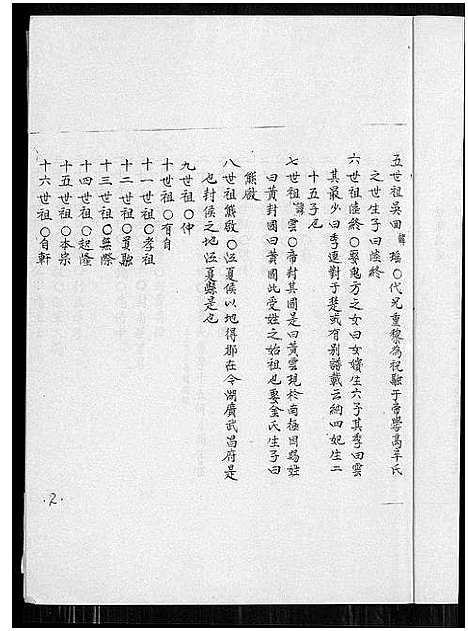 五世祖吳回諱瑤○代兄重黎為祝融于帝嚳高辛氏
之世生子曰陸終
六世祖陸終○娶鬼方之女曰女嬪生六子其季曰雲
其最少曰季連對于楚或有別譜載云納四妃生二
十五子也
七世祖諱雲○帝封其國是曰黃雲現於南極因賜姓
曰黃封國曰黃國此受姓之始祖也娶金氏生子曰
熊啟
八世祖熊啟○江夏侯以地得郡在今湖廣武昌府是
也封侯之地江夏縣是也
九世祖○仲
十世祖○有自
十一世祖○孝祖
十二世祖○貢融
十三世祖○無際
十四世祖○起隆
十五世祖○本宗
十六世祖○自軒
.2.